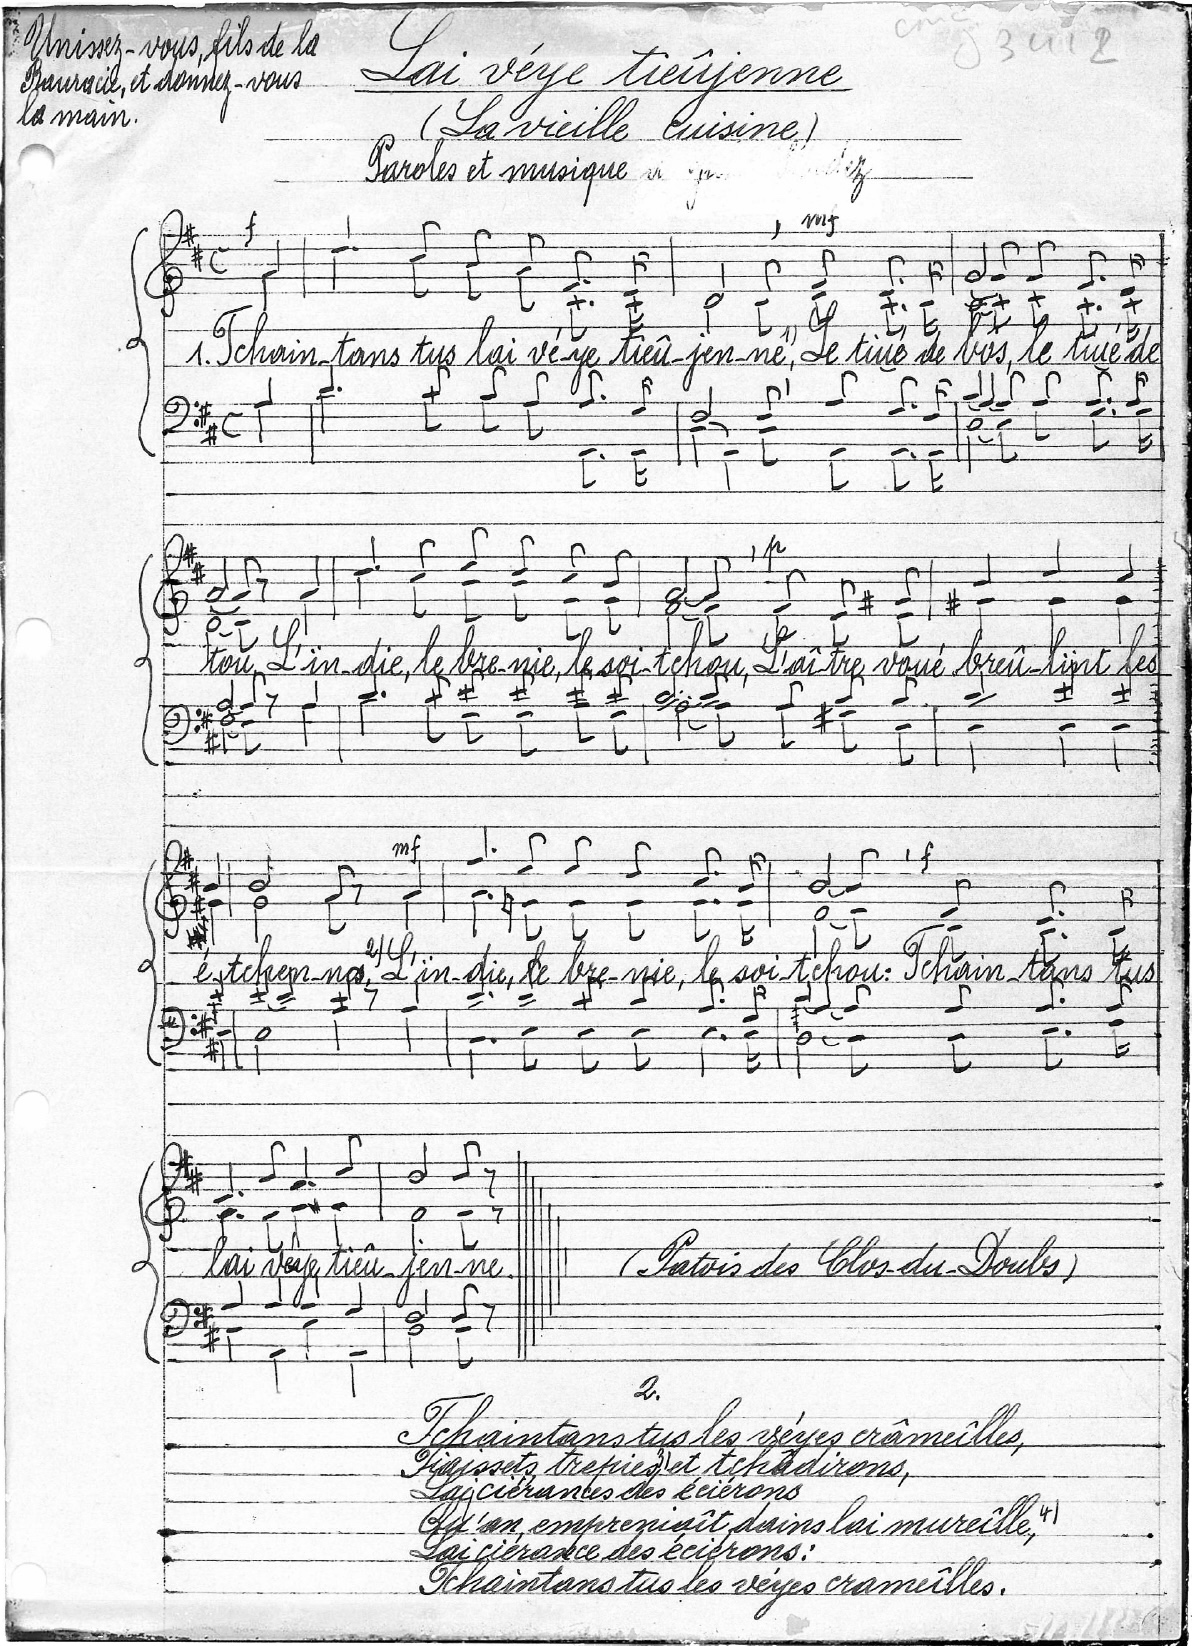 Unissez-vous, fils de la
Rauracie, et donnez-vous
la main.
Lai véye tieûjenne
(La vieille cuisine)
Paroles et musique
f
mf
1. Tchain-tans tus lai vé-ye tieû-jen-ne, 1) Le tiué de bos, le tiué de
p
tou, L'ïn-die, le bre-nie, le soi-tchou, L'aî-tre voué breû-lïnt les
mf
f
é-tchen-nes, 2) L'ïn-die, le bre-nie, le soi-tchou: Tchain-tans tus
lai véye tieû-jen-ne.
(Patois des Clos-du-Doubs)
2.
Tchaintans tus les véyes crâmeîlles,
Fiaissets, trepies 3) et tchâdirons,
Lai ciérance des éciérons
Qu'an empreniaît dains lai mureîlle, 4)
Lai ciérance des éciérons:
Tchaintans tus les véyes crameîlles.